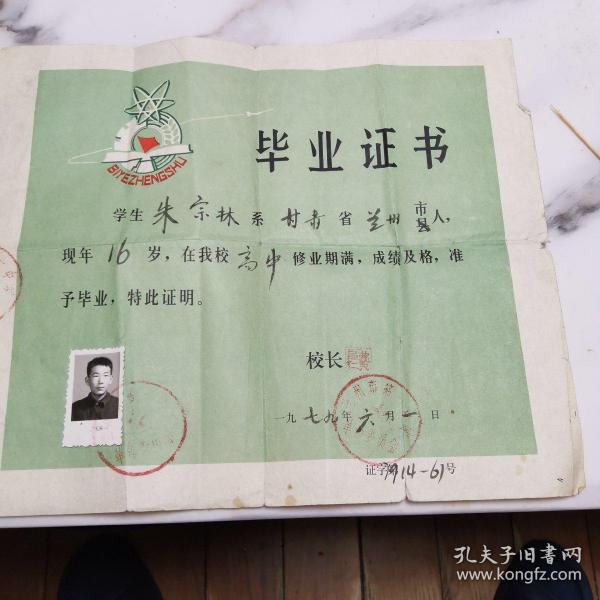 BIYEZHENGSHU
毕业证书
学生 朱宗林 系 甘肃 省 兰州 市县人，
现年 16 岁，在我校 高中 修业期满，成绩及格，准
予毕业，特此证明。
校长
一九七九年六月一日
证字第914-61号
孔夫子旧书网
www.kongfz.com